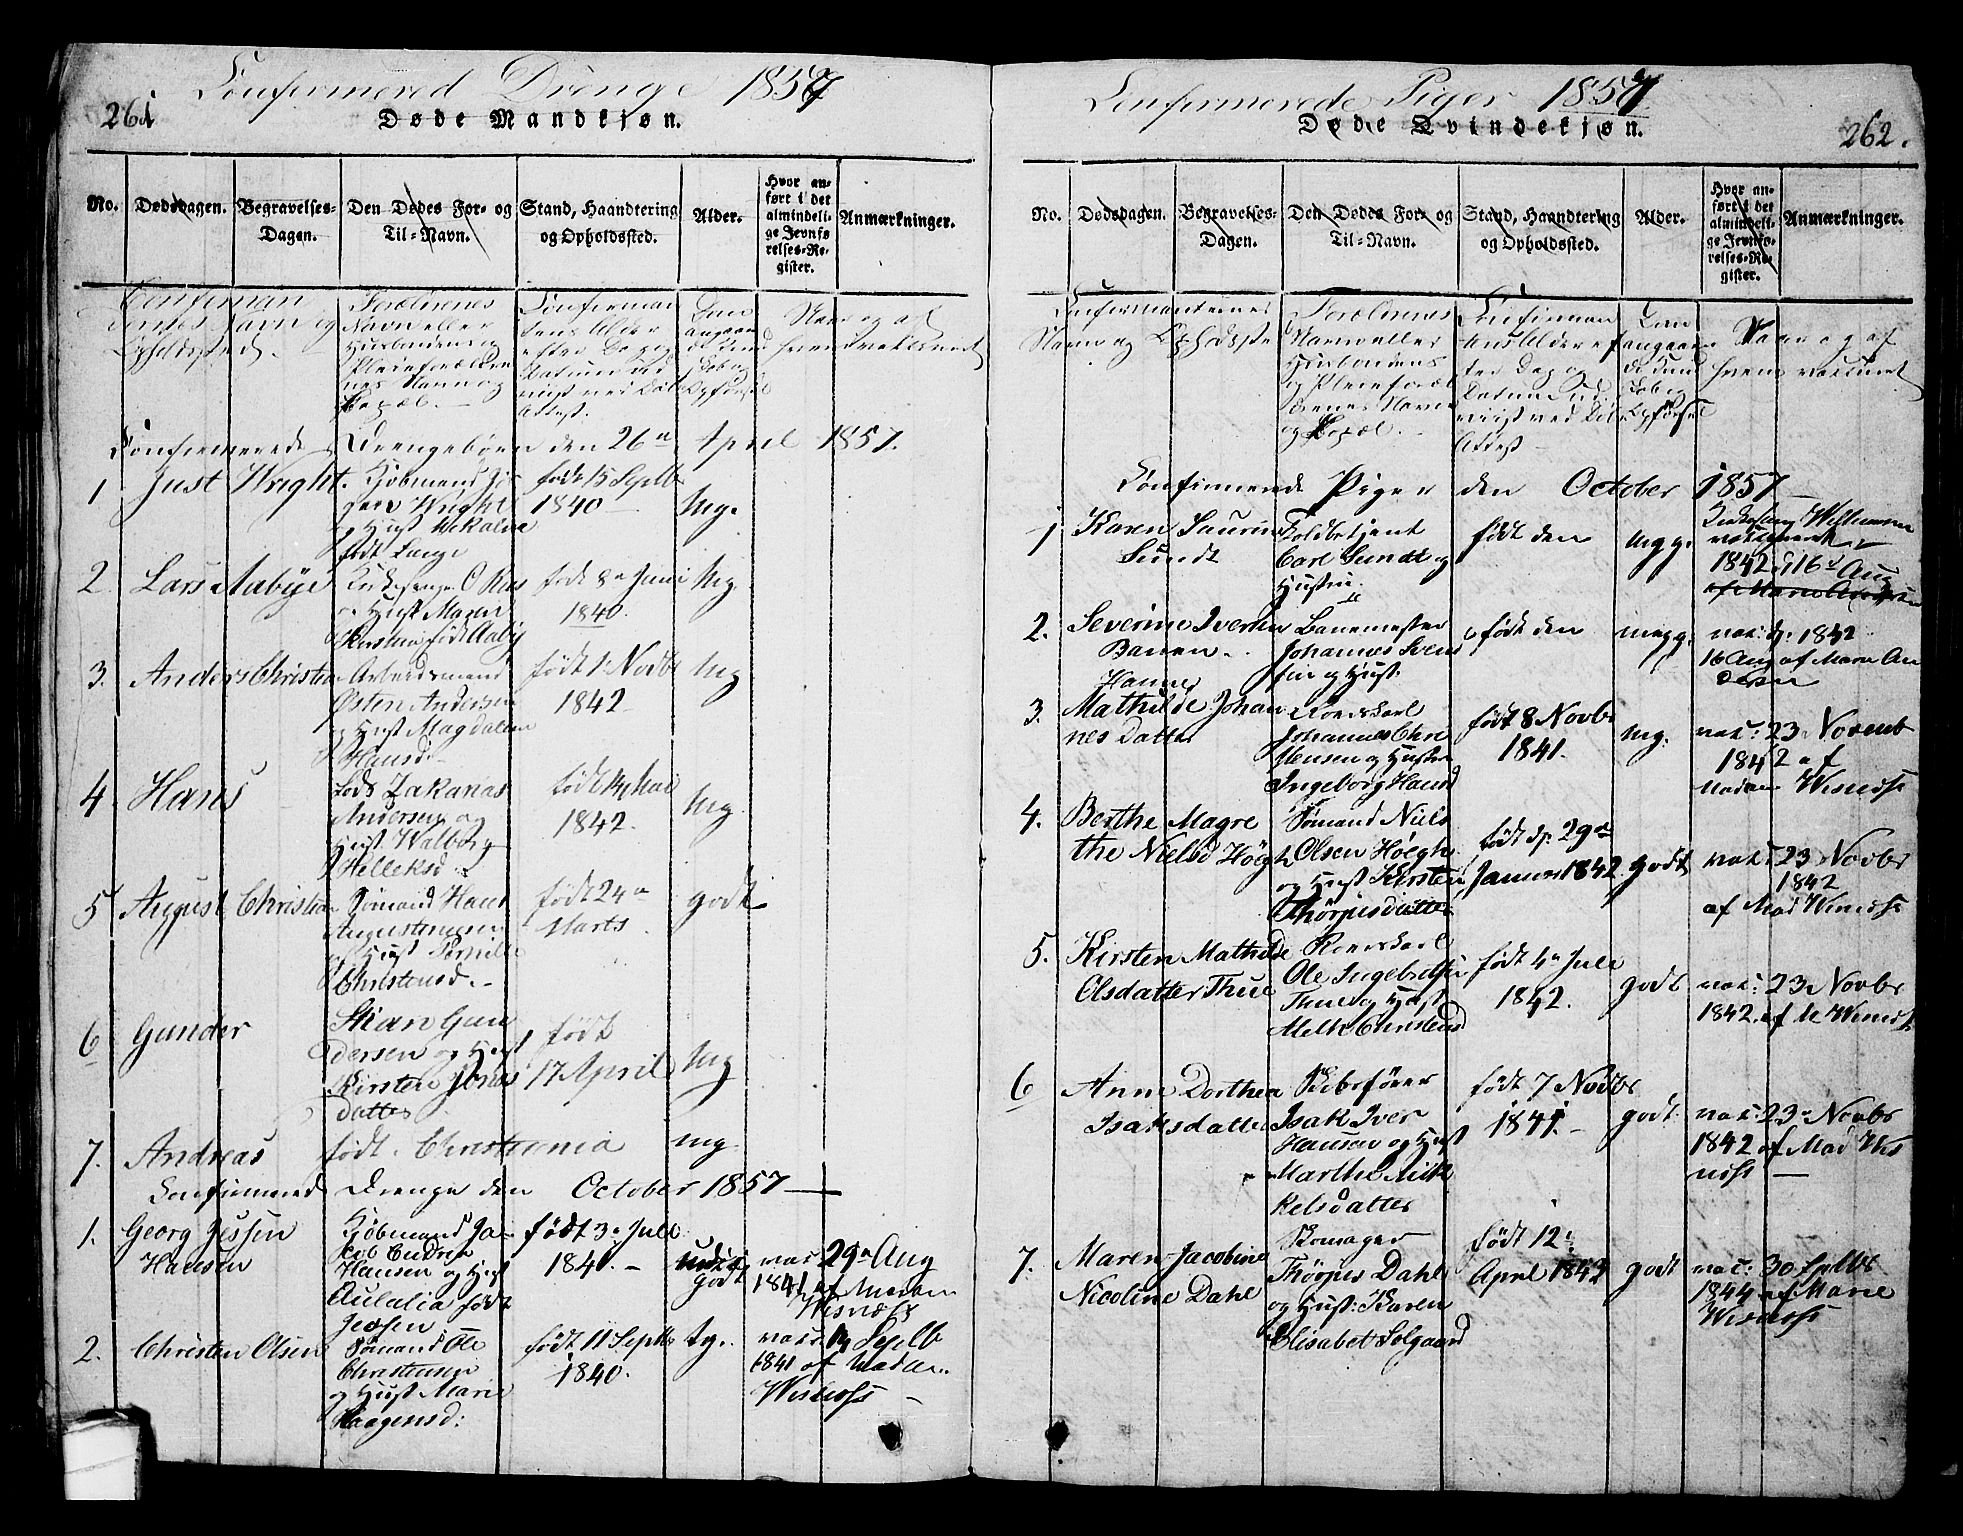 Confirmered Drenge 1857
261
Døde Mandkjøn.
No. Dødsdagen. Begravelses-Dagen. Den Dødes For- og Til-Navn. Stand, Haandtering og Opholdssted. Alder. Hvor anført i det almindelige Jevnførelses-Register. Anmærkninger.
Confirman
ternes Navn og
Opholdsted.
Forældrenes
Navn eller
Husbondens og
Pleieforældre
nes Navn og
Confirman
tens Alder
efter Dag og
Datum
Attest.
Dom
angaaen
de Kund
skab og
Opførsel
Naar og af
hvem vaksineret
Confirmerede Drengebørn den 26de April 1857.
1 Just Wright. Kjøbmand Jør
gen Wright
og Hust
født Lange
født 15 Septb
1840
Mg.
2 Lars Aabye
og Hust Maren
født Aaby
født 8de Juni
1840.
Mg
3. Anders Christen
Arbeidsmand
Østen Andersen
og Hust Magdalene
Hansd.
født 1 Novbr
1842
Mg
4 Hans
Lods Zakarias
Andersen og
Hust Walborg
Helleksd.
født Mai
1842.
Mg
5 August Christian
Sømand Hans
Augustinusen
og Hust Pernille
Christensd.
født 24de
Marts
godt
6 Gunder
Gun
dersen og Hust
Kirsten Jonas
datter
født
17 April
Mg
7. Andreas født Christiania mg
Confirmered Drenge den October 1857
1. Georg Jessen
Hansen
Kjøbmand Ja
cob Endres
Hansen og Hust
Aulalia født
Jessen
født 3de Juli
1841.
godt
vac 29de Aug
1841 af Madam
Wisnæss
2. Christen Olsen
Sømand Ole
Christensen
og Hust Marie
Haagensd:
født 11 Septb
1840.
tg.
vac: 14 Septb
1841 af Madam
Wisness
Confirmerede Piger 1857
262.
Døde Qvindekjøn.
No. Dødsdagen. Begravelses-Dagen. Den Dødes For- og Til-Navn. Stand, Haandtering og Opholdssted. Alder. Hvor anført i det almindelige Jevnførelses-Register. Anmærkninger.
Confirmanternes
Navn og Opholdsste
Forældrenes
Navn eller
Husbondens
og Pleieforæl
drenes Navn
Confirman
tens Alder ef
ter Dag og
Datum
Attest
Dom
angaaen
de Kund
skab og
Opførsel
Naar og af
hvem vaksineret
Confirmerede Piger den October 1857
1 Karen Laurine
Sundt
Toldbetjent
Carl Sundt og
Hustru
født den
mgg.
Kirkesanger Willumsen
1842 d 16de Aug
2. Severine Iversen
Hanne
Banemester
Johannes Svend
sen og Hust:
født den
megg.
vak: d: 1842
16 Aug af Marn An
dersen
3. Mathilde Johan
nes Datter
Roerskarl
Johannes Chri
stensen og Hustru
Ingeborg Hansd
født 8 Novbr
1841.
Mg.
vak: 23 Novemb
1842 af
Madam Wisness
4. Berthe Magre
the Nielsd Høgh
Sømand Niels
Olsen Høegh
og Hust Kirsten
Thorjusdatter
født d. 29de
Januar 1842
godt
vak: 23 Novbr
1842
af Mad Wisness
5. Kirsten Mathilde
Olsdatter Thue
Roerskarl
Ole Ingebretsen
Thue og Hust
født 4de Juli
1842.
godt
vak: 23 Novbr
1842. af M Wisness
6 Anne Dorthea
Isaksdatter
Isak Iver
Hansen og Hust
Marthe Mik
kelsdatter
født 7 Novbr
1841.
godt.
vak: 23de Novbr
1842 af Mad Wis
ness
7. Maren Jacobine
Nicoline Dahl
Skomager
Thorjus Dahl
og Hust: Karen
Elisabet Solgaard
født 12te
April 1842
godt
vac: 30 Septbr
1844 af Marie
Wisness